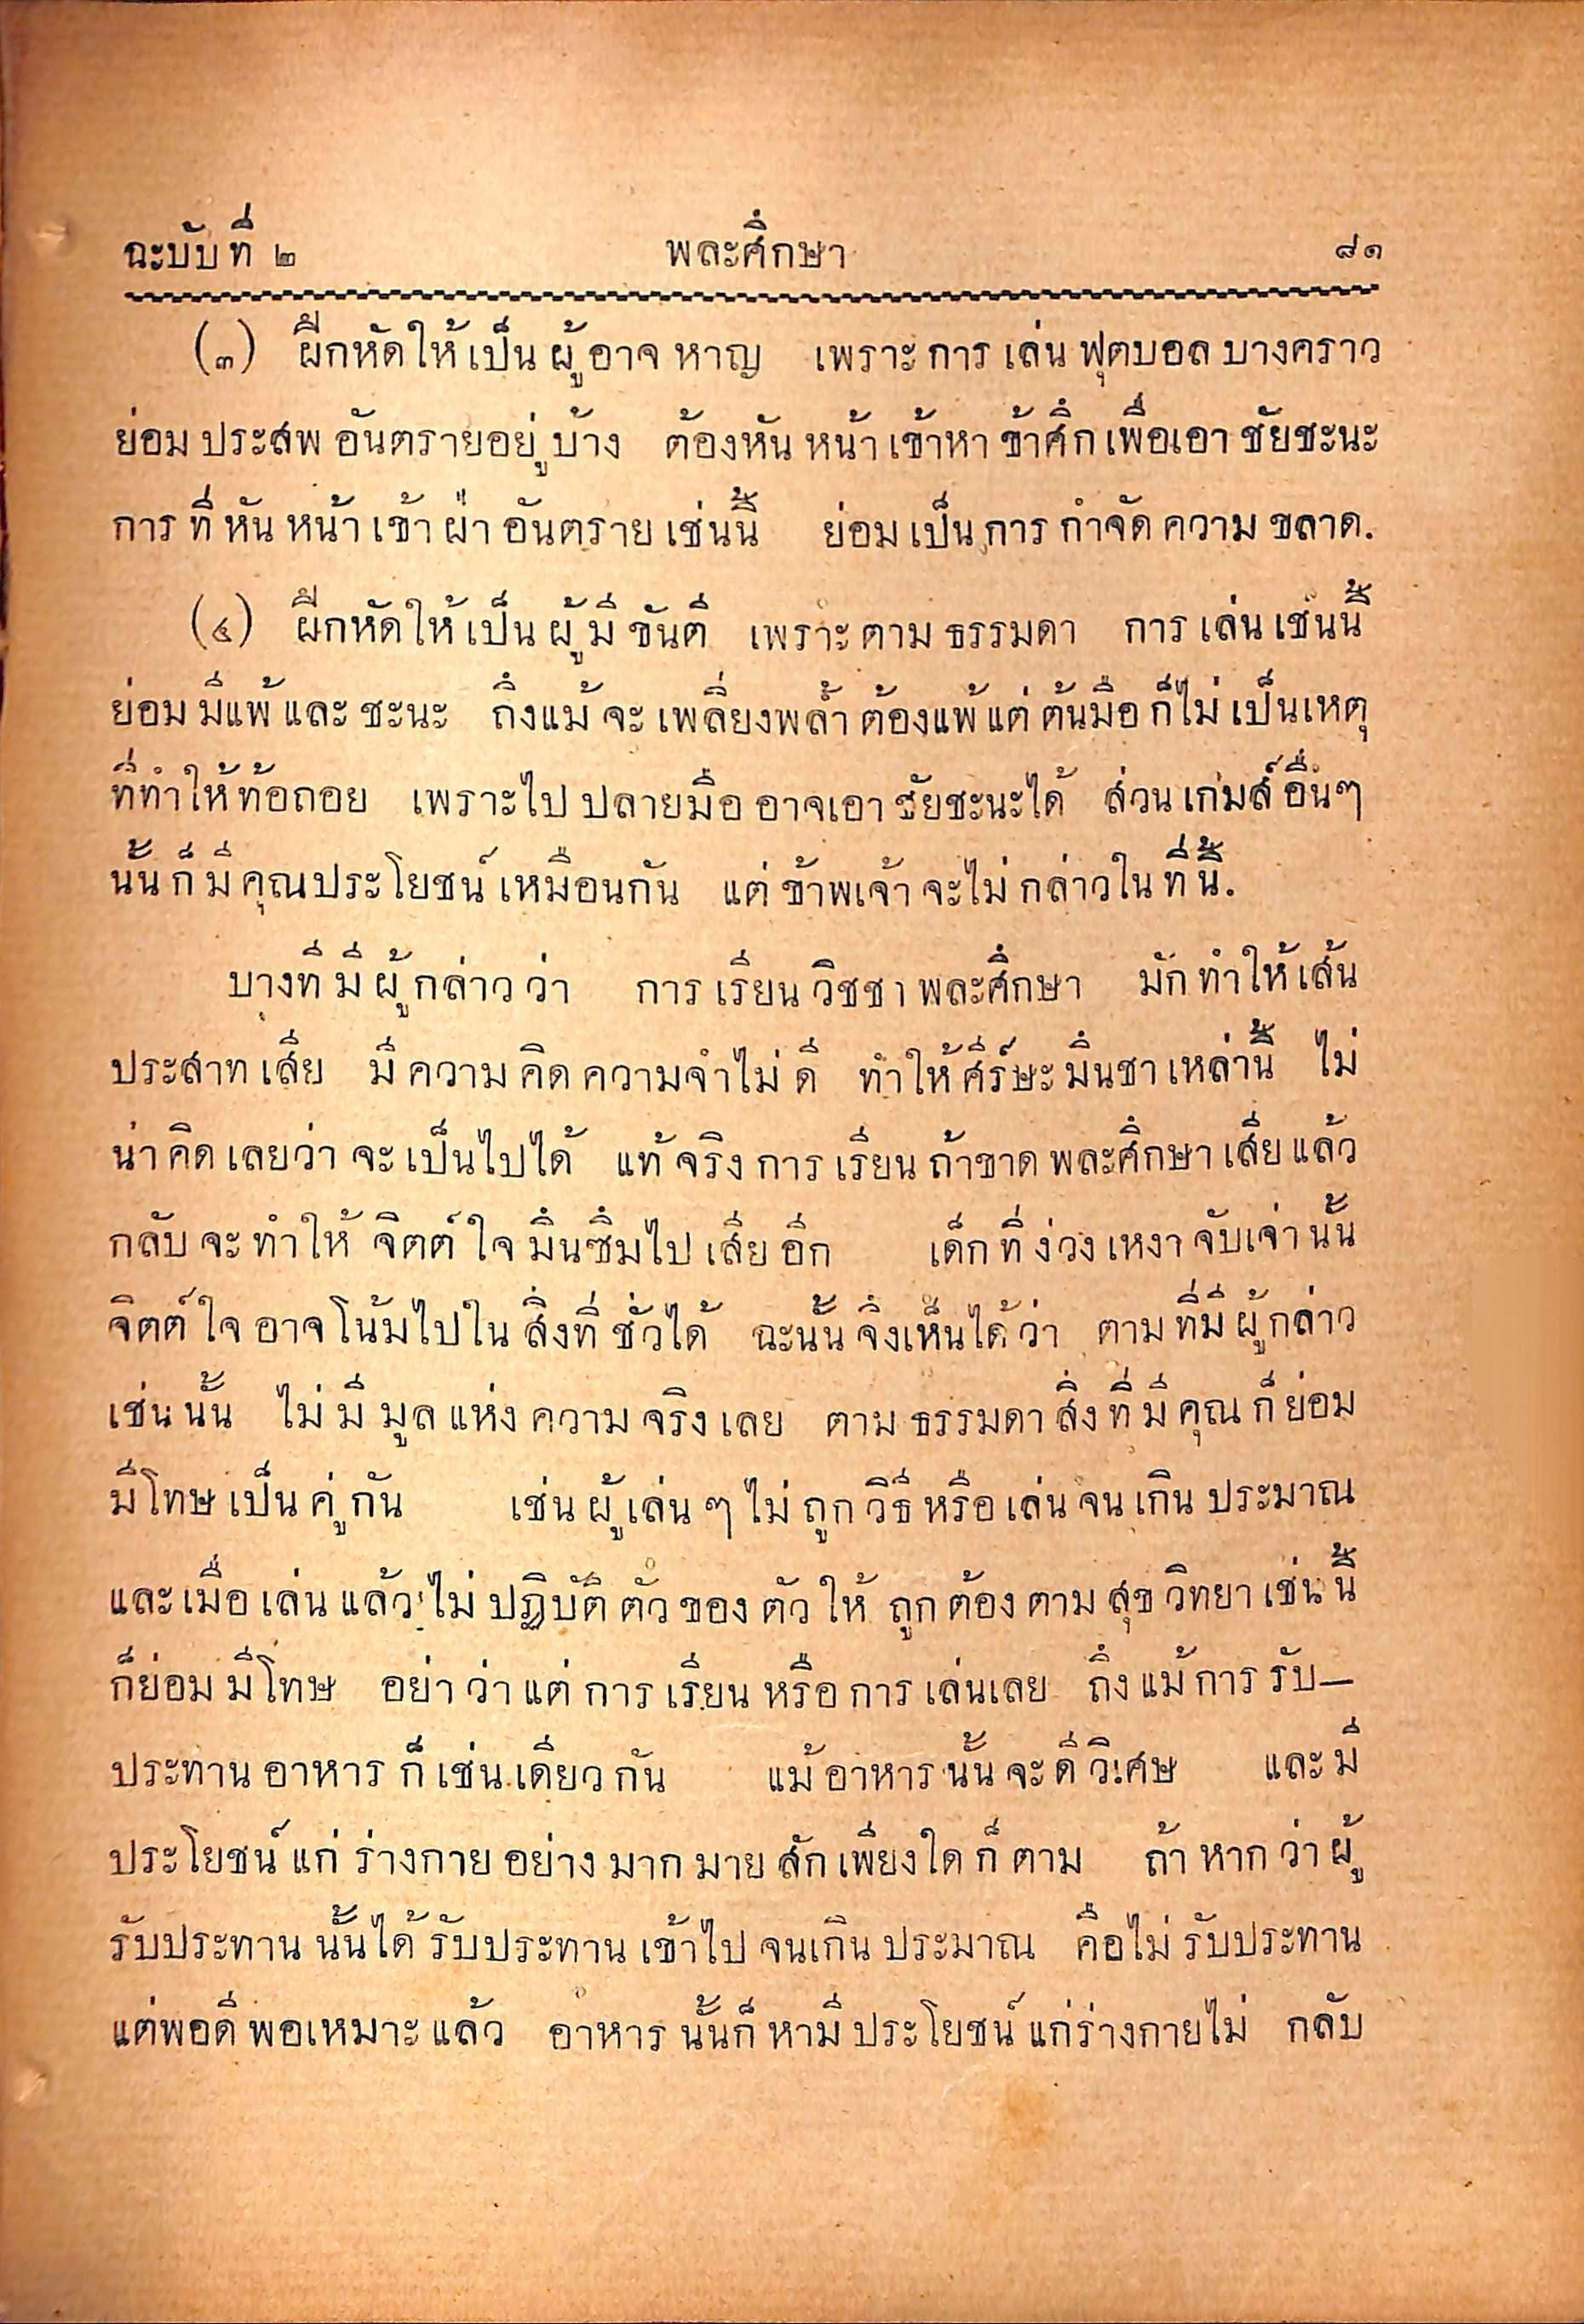 ฉะบับที่ ๒ พละศึกษา ๘๑
(๓) ฝึกหัดให้เป็นผู้อาจหาญ เพราะการเล่นฟุตบอลบางคราว
ย่อมประสพอันตรายอยู่บ้าง ต้องหันหน้าเข้าหาข้าศึกเพื่อเอาชัยชะนะ
การที่หันหน้าเข้าฝ่าอันตรายเช่นนี้ ย่อมเป็นการกำจัดความขลาด.
(๔) ฝึกหัดให้เป็นผู้มีขันตี เพราะตามธรรมดา การเล่นเช่นนี้
ย่อมมีแพ้และชะนะ ถึงแม้จะเพลี่ยงพล้ำต้องแพ้แต่ต้นมือก็ไม่เป็นเหตุ
ที่ทำให้ท้อถอย เพราะไปปลายมืออาจเอาชัยชะนะได้ ส่วนเก่มส์อื่นๆ
นั้นก็มีคุณประโยชน์เหมือนกัน แต่ข้าพเจ้าจะไม่กล่าวในที่นี้.
บางทีมีผู้กล่าวว่า การเรียนวิชชาพละศึกษา มักทำให้เส้น
ประสาทเสีย มีความคิดความจำไม่ดี ทำให้ศีร์ษะมึนชาเหล่านี้ ไม่
น่าคิดเลยว่าจะเป็นไปได้ แท้จริงการเรียนถ้าขาดพละศึกษาเสียแล้ว
กลับจะทำให้จิตต์ใจมึนซึมไปเสียอีก เด็กที่ง่วงเหงาจับเจ่านั้น
จิตต์ใจอาจโน้มไปในสิ่งที่ชั่วได้ ฉะนั้นจึ่งเห็นได้ว่า ตามที่มีผู้กล่าว
เช่นนั้น ไม่มีมูลแห่งความจริงเลย ตามธรรมดาสิ่งที่มีคุณก็ย่อม
มีโทษเป็นคู่กัน เช่นผู้เล่นๆไม่ถูกวิธีหรือเล่นจนเกินประมาณ
และเมื่อเล่นแล้วไม่ปฏิบัติตัวของตัวให้ถูกต้องตามสุขวิทยาเช่นนี้
ก็ย่อมมีโทษ อย่าว่าแต่การเรียนหรือการเล่นเลย ถึงแม้การรับ—
ประทานอาหารก็เช่นเดียวกัน แม้อาหารนั้นจะดีวิเศษ และมี
ประโยชน์แก่ร่างกายอย่างมากมายสักเพียงใดก็ตาม ถ้าหากว่าผู้
รับประทานนั้นได้รับประทานเข้าไปจนเกินประมาณ คือไม่รับประทาน
แต่พอดีพอเหมาะแล้ว อาหารนั้นก็หามีประโยชน์แก่ร่างกายไม่ กลับ